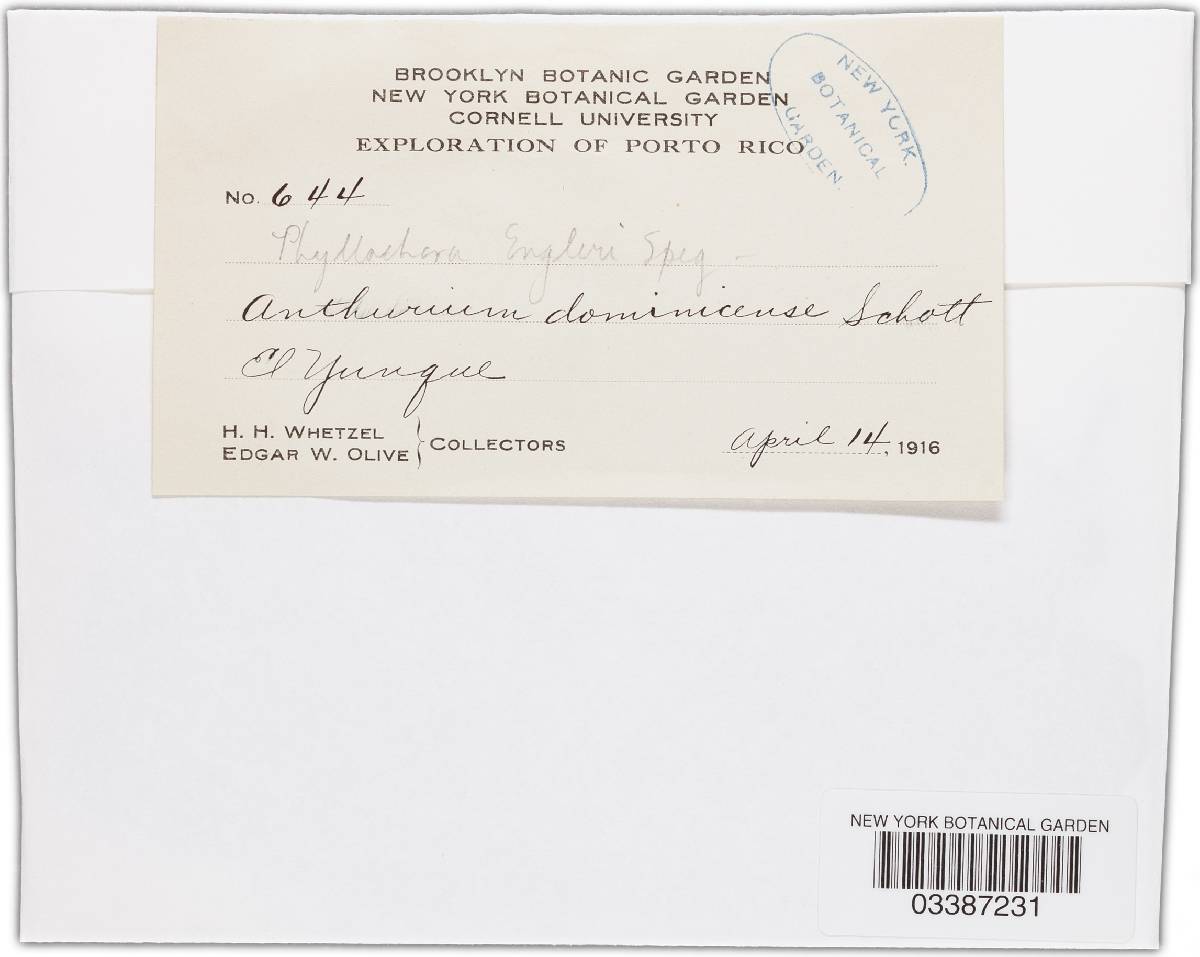 BROOKLYN BOTANIC GARDEN
NEW YORK BOTANICAL GARDEN
CORNELL UNIVERSITY
EXPLORATION OF PORTO RICO
NEW YORK
BOTANICAL
GARDEN.
No. 644
Phyllachora Engleri Speg -
Anthurium dominicense Schott
El Yunque
H. H. WHETZEL
EDGAR W. OLIVE } COLLECTORS
April 14, 1916
NEW YORK BOTANICAL GARDEN
03387231